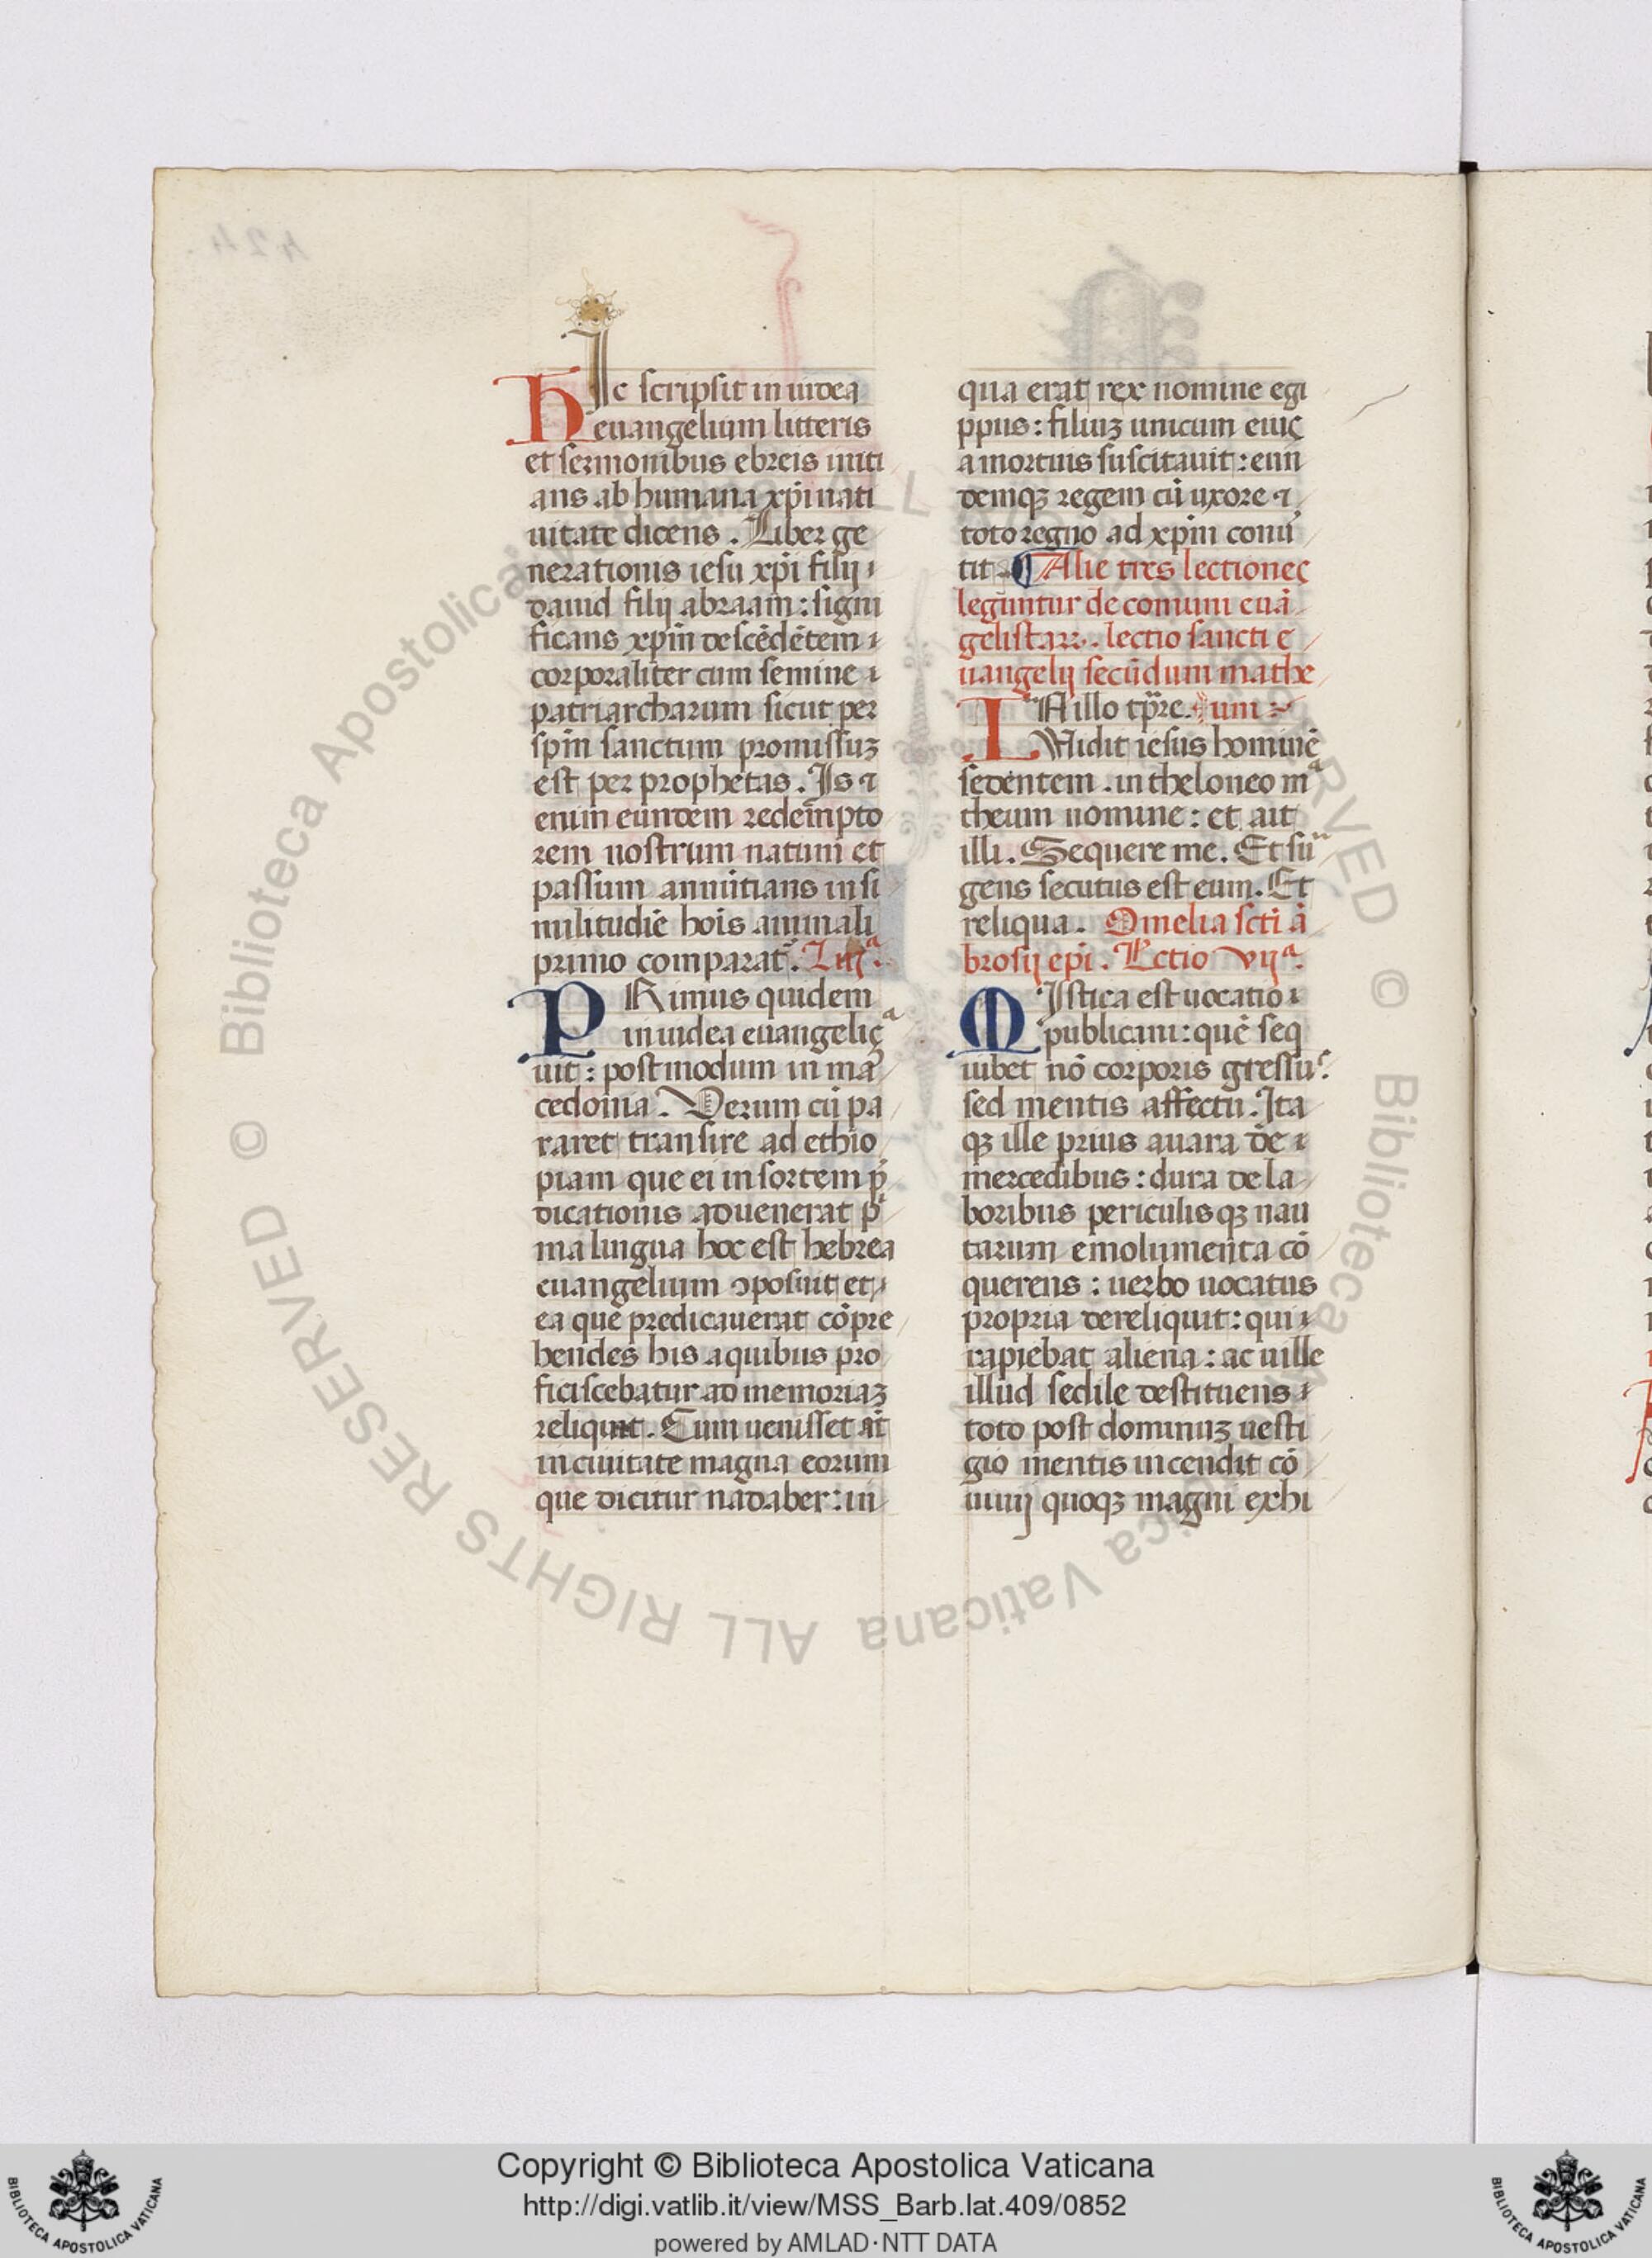 hIc scripsit in iudea
euangelium litteris
et sermonibus ebreis initi
ans ab humana xp̄i nati
uitate dicens. Liber ge
nerationis iesu xp̄i filij
dauid filij abraam: signi
ficans xp̄m descēdētem
corporaliter cum semine
patriarcharum sicut per
spm̄ sanctum promissuꝫ
est per prophetas. Is ⁊
enim eundem redempto
rem nostrum natum et
passum annūtians in si
militudīe hoīs animali
primo comparat̄. L. iijª.
PRimus quidem
in iudea euangeliçª
uit: postmodum in ma
cedonia. Verum cū pa
raret transire ad ethio
piam que ei in sortem p̄
dicationis aduenerat pⁱ
ma lingua hoc est hebrea
euangelium ꝯposuit et
ea que predicauerat cōpre
hendēs his a quibus pro
ficiscebatur ad memoriaꝫ
reliquit. Cum uenisset at̄
in ciuitate magna eorum
que dicitur nadaber: in
qua erat rex nomine egi
ppus: filiuꝫ unicum eiuς
a mortuis suscitauit: eun
demqꝫ regem cū uxore ⁊
toto regno ad xp̄m conu̓
tit. ¶ Alie tres lectioneς
leguntur de comuni euā
gelistaꝝ. lectio sancti e
uangelij secūdum mathe
IN illo tp̄re. um
Vidit iesus hominē
sedentem. in theloneo mª
theum nomine: et ait
illi. Sequere me. Et su
gens secutus est eum. Et
reliqua. Omelia scti ā
brosij epi. Lectio vijª.
MIstica est uocatio
publicani: quē seq
iubet nō corporis gressu:
sed mentis affectu. Ita
qꝫ ille prius auara de
mercedibus: dura de la
boribus periculisqꝫ nau
tarum emolumenta cō
querens: uerbo uocatus
propria dereliquit: qui
rapiebat aliena: ac uille
illud sedile destituens
toto post dominuꝫ uesti
gio mentis incendit cō
uiuij quoqꝫ magni exhi
© Biblioteca Apostolica Vaticana ALL RIGHTS RESERVED
Copyright © Biblioteca Apostolica Vaticana
http://digi.vatlib.it/view/MSS_Barb.lat.409/0852
powered by AMLAD·NTT DATA
BIBLIOTECA APOSTOLICA VATICANA
BIBLIOTECA APOSTOLICA VATICANA